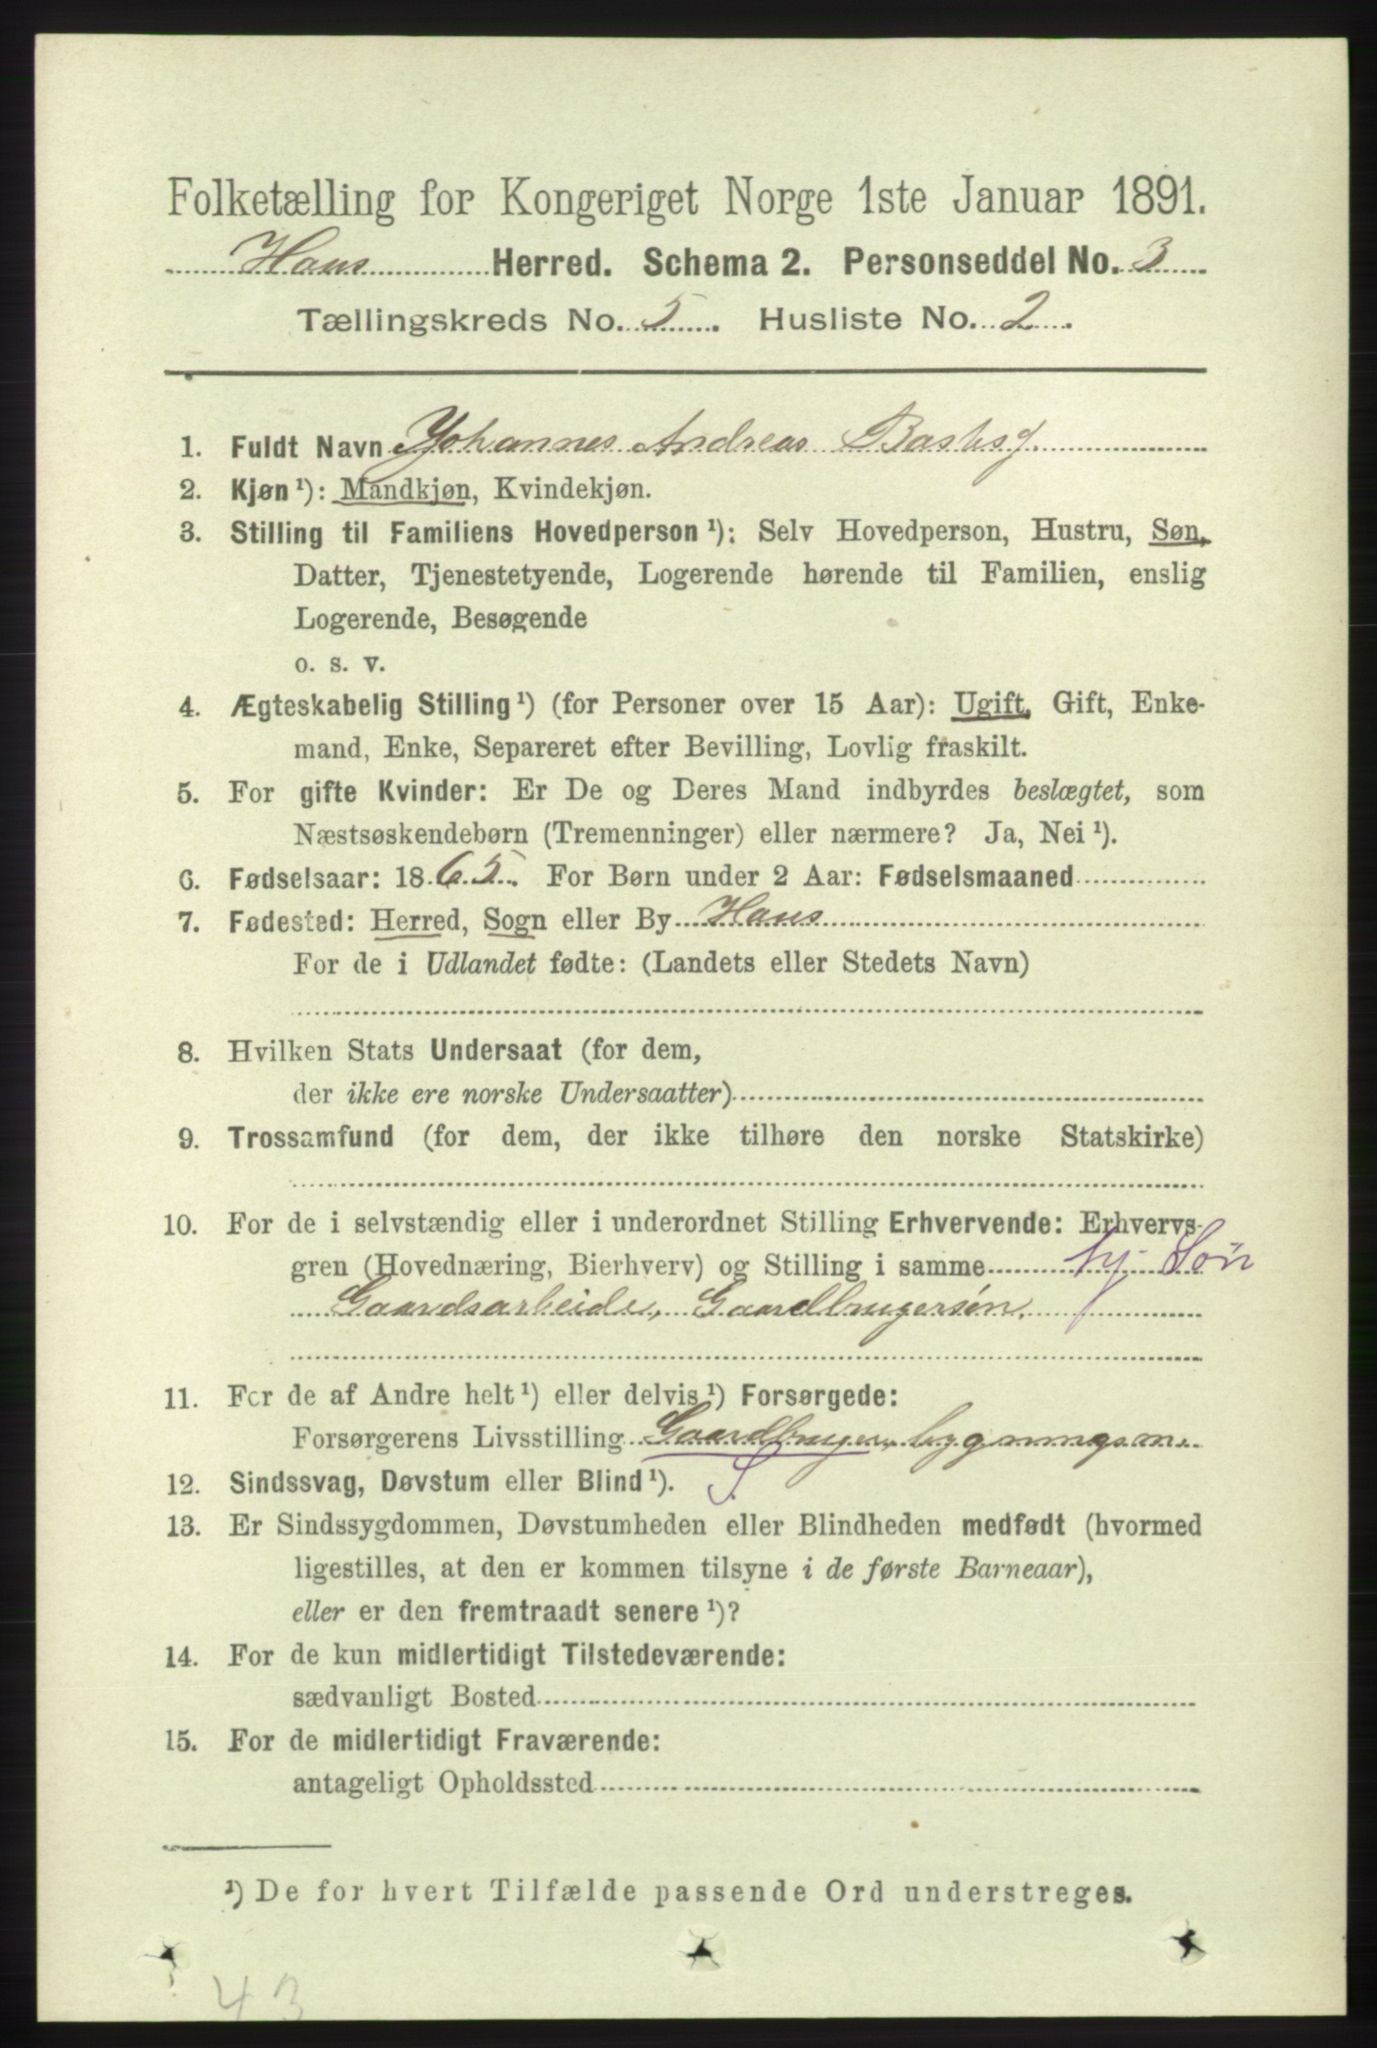 Folketælling for Kongeriget Norge 1ste Januar 1891.
Haus Herred. Schema 2. Personseddel No. 3
Tællingskreds No. 5. Husliste No. 2.
1. Fuldt Navn Johannes Andreas
2. Kjøn¹): Mandkjøn, Kvindekjøn.
3. Stilling til Familiens Hovedperson¹): Selv Hovedperson, Hustru, Søn,
Datter, Tjenestetyende, Logerende hørende til Familien, enslig
Logerende, Besøgende
o. s. v.
4. Ægteskabelig Stilling¹) (for Personer over 15 Aar): Ugift, Gift, Enke-
mand, Enke, Separeret efter Bevilling, Lovlig fraskilt.
5. For gifte Kvinder: Er De og Deres Mand indbyrdes beslægtet, som
Næstsøskendebørn (Tremenninger) eller nærmere? Ja, Nei¹).
6. Fødselsaar: 1865. For Børn under 2 Aar: Fødselsmaaned
7. Fødested: Herred, Sogn eller By Haus
For de i Udlandet fødte: (Landets eller Stedets Navn)
8. Hvilken Stats Undersaat (for dem,
der ikke ere norske Undersaatter)
9. Trossamfund (for dem, der ikke tilhøre den norske Statskirke)
10. For de i selvstændig eller i underordnet Stilling Erhvervende: Erhvervs-
gren (Hovednæring, Bierhverv) og Stilling i samme hj. Søn
Gaardsarbeide, Gaardbrugersøn.
11. For de af Andre helt¹) eller delvis¹) Forsørgede:
Forsørgerens Livsstilling Gaardbruger, bygningsm.
12. Sindssvag, Døvstum eller Blind¹). S
13. Er Sindssygdommen, Døvstumheden eller Blindheden medfødt (hvormed
ligestilles, at den er kommen tilsyne i de første Barneaar),
eller er den fremtraadt senere¹)?
14. For de kun midlertidigt Tilstedeværende:
sædvanligt Bosted
15. For de midlertidigt Fraværende:
antageligt Opholdssted
¹) De for hvert Tilfælde passende Ord understreges.
43